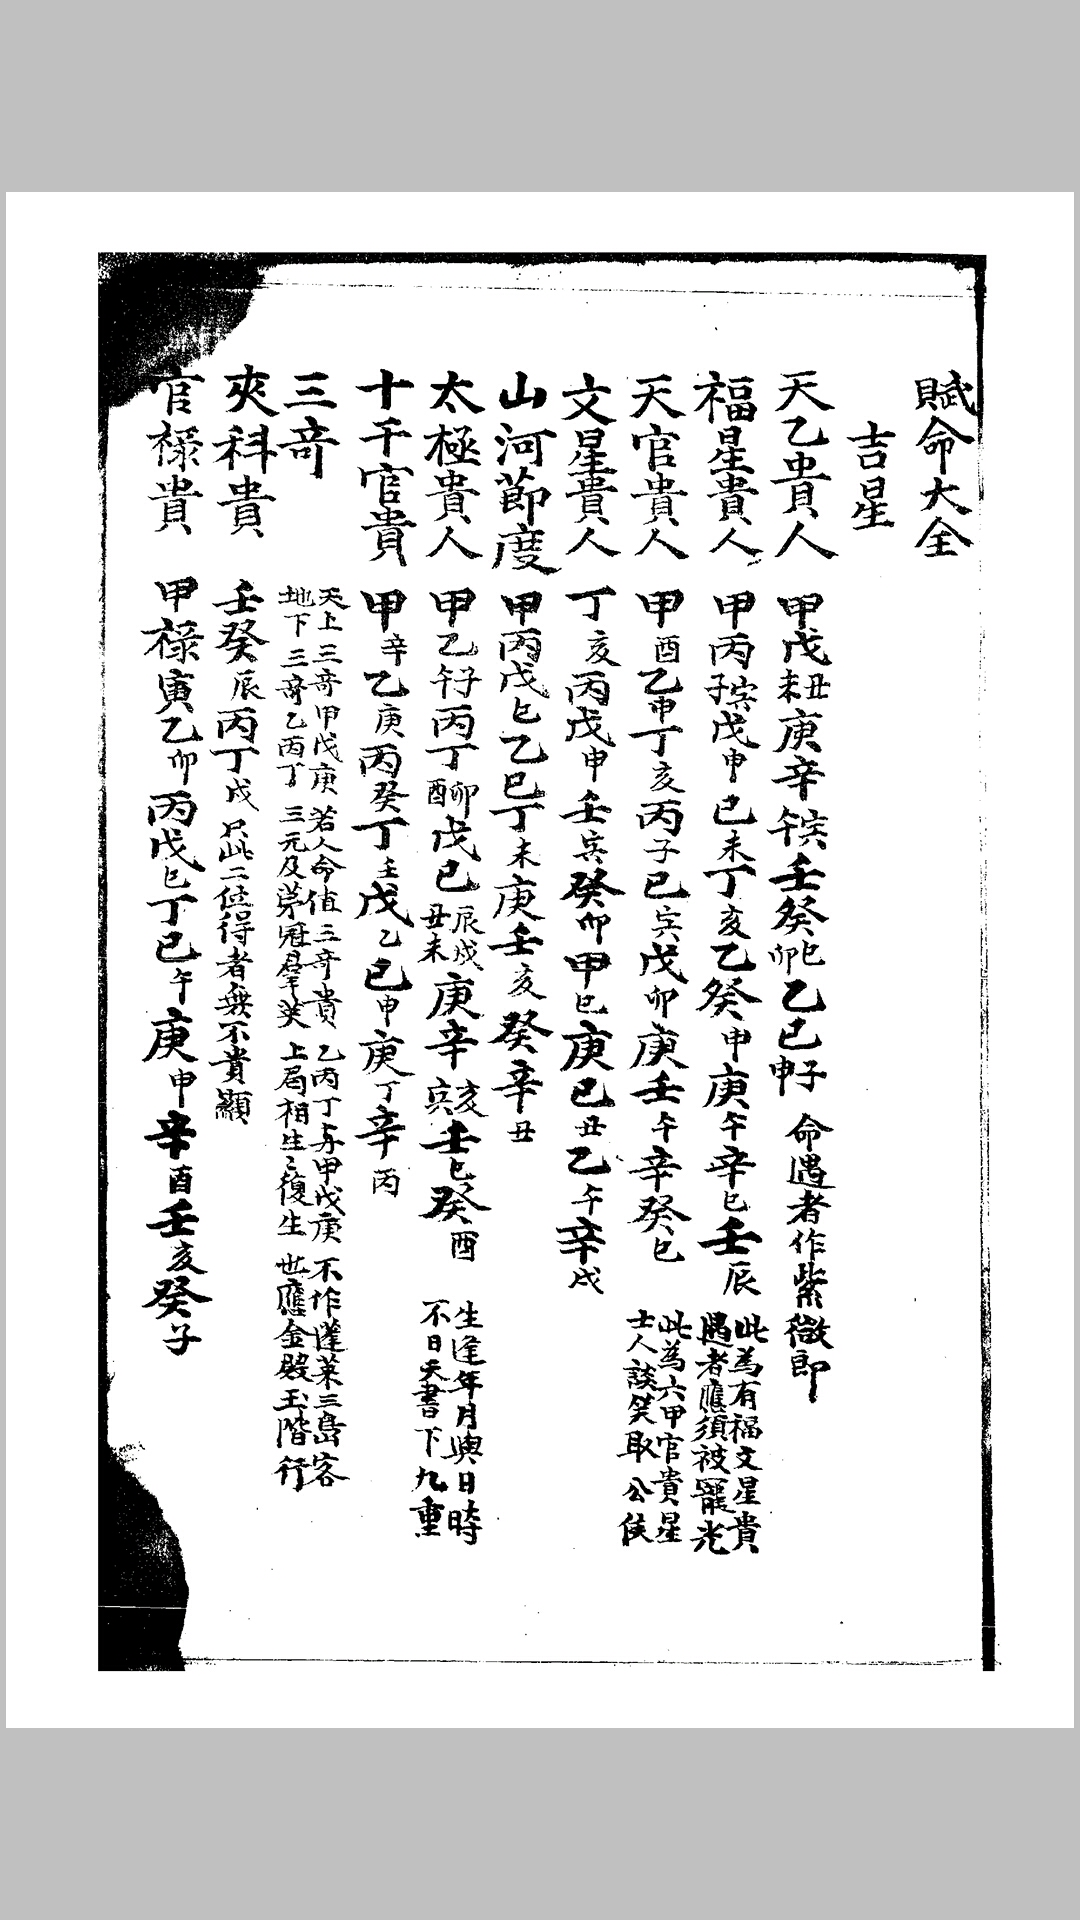 賦命大全
吉星
天乙貴人 甲戊丑未庚辛寅午壬癸巳卯乙己子申 命遇者作紫微郎
福星貴人 甲丙寅子戊申己未丁亥乙癸申庚午辛巳壬辰 此為有福文星貴 遇者應須被寵光
天官貴人 甲酉乙申丁亥丙子己寅戊卯庚壬午辛癸巳 此為六甲官貴星 士人談笑取公侯
文星貴人 丁亥丙戊申壬寅癸卯甲巳庚己丑乙午辛戌
山河節度 甲丙戊巳乙巳丁未庚壬亥癸辛丑
太極貴人 甲乙子午丙丁卯酉戊己辰戌丑未庚辛亥寅壬巳癸酉 生逢年月與日時 不日天書下九重
十干官貴 甲辛乙庚丙癸丁壬戊乙己申庚丁辛丙
三奇 天上三奇甲戊庚 地下三奇乙丙丁 若人命值三奇貴 三元及第冠羣英 乙丙丁与甲戊庚 上局相生〻復生 不作蓬萊三島客 也應金殿玉階行
夾科貴 壬癸辰丙丁戌 只此二位得者無不貴顯
官祿貴 甲祿寅乙卯丙戊巳丁己午庚申辛酉壬亥癸子